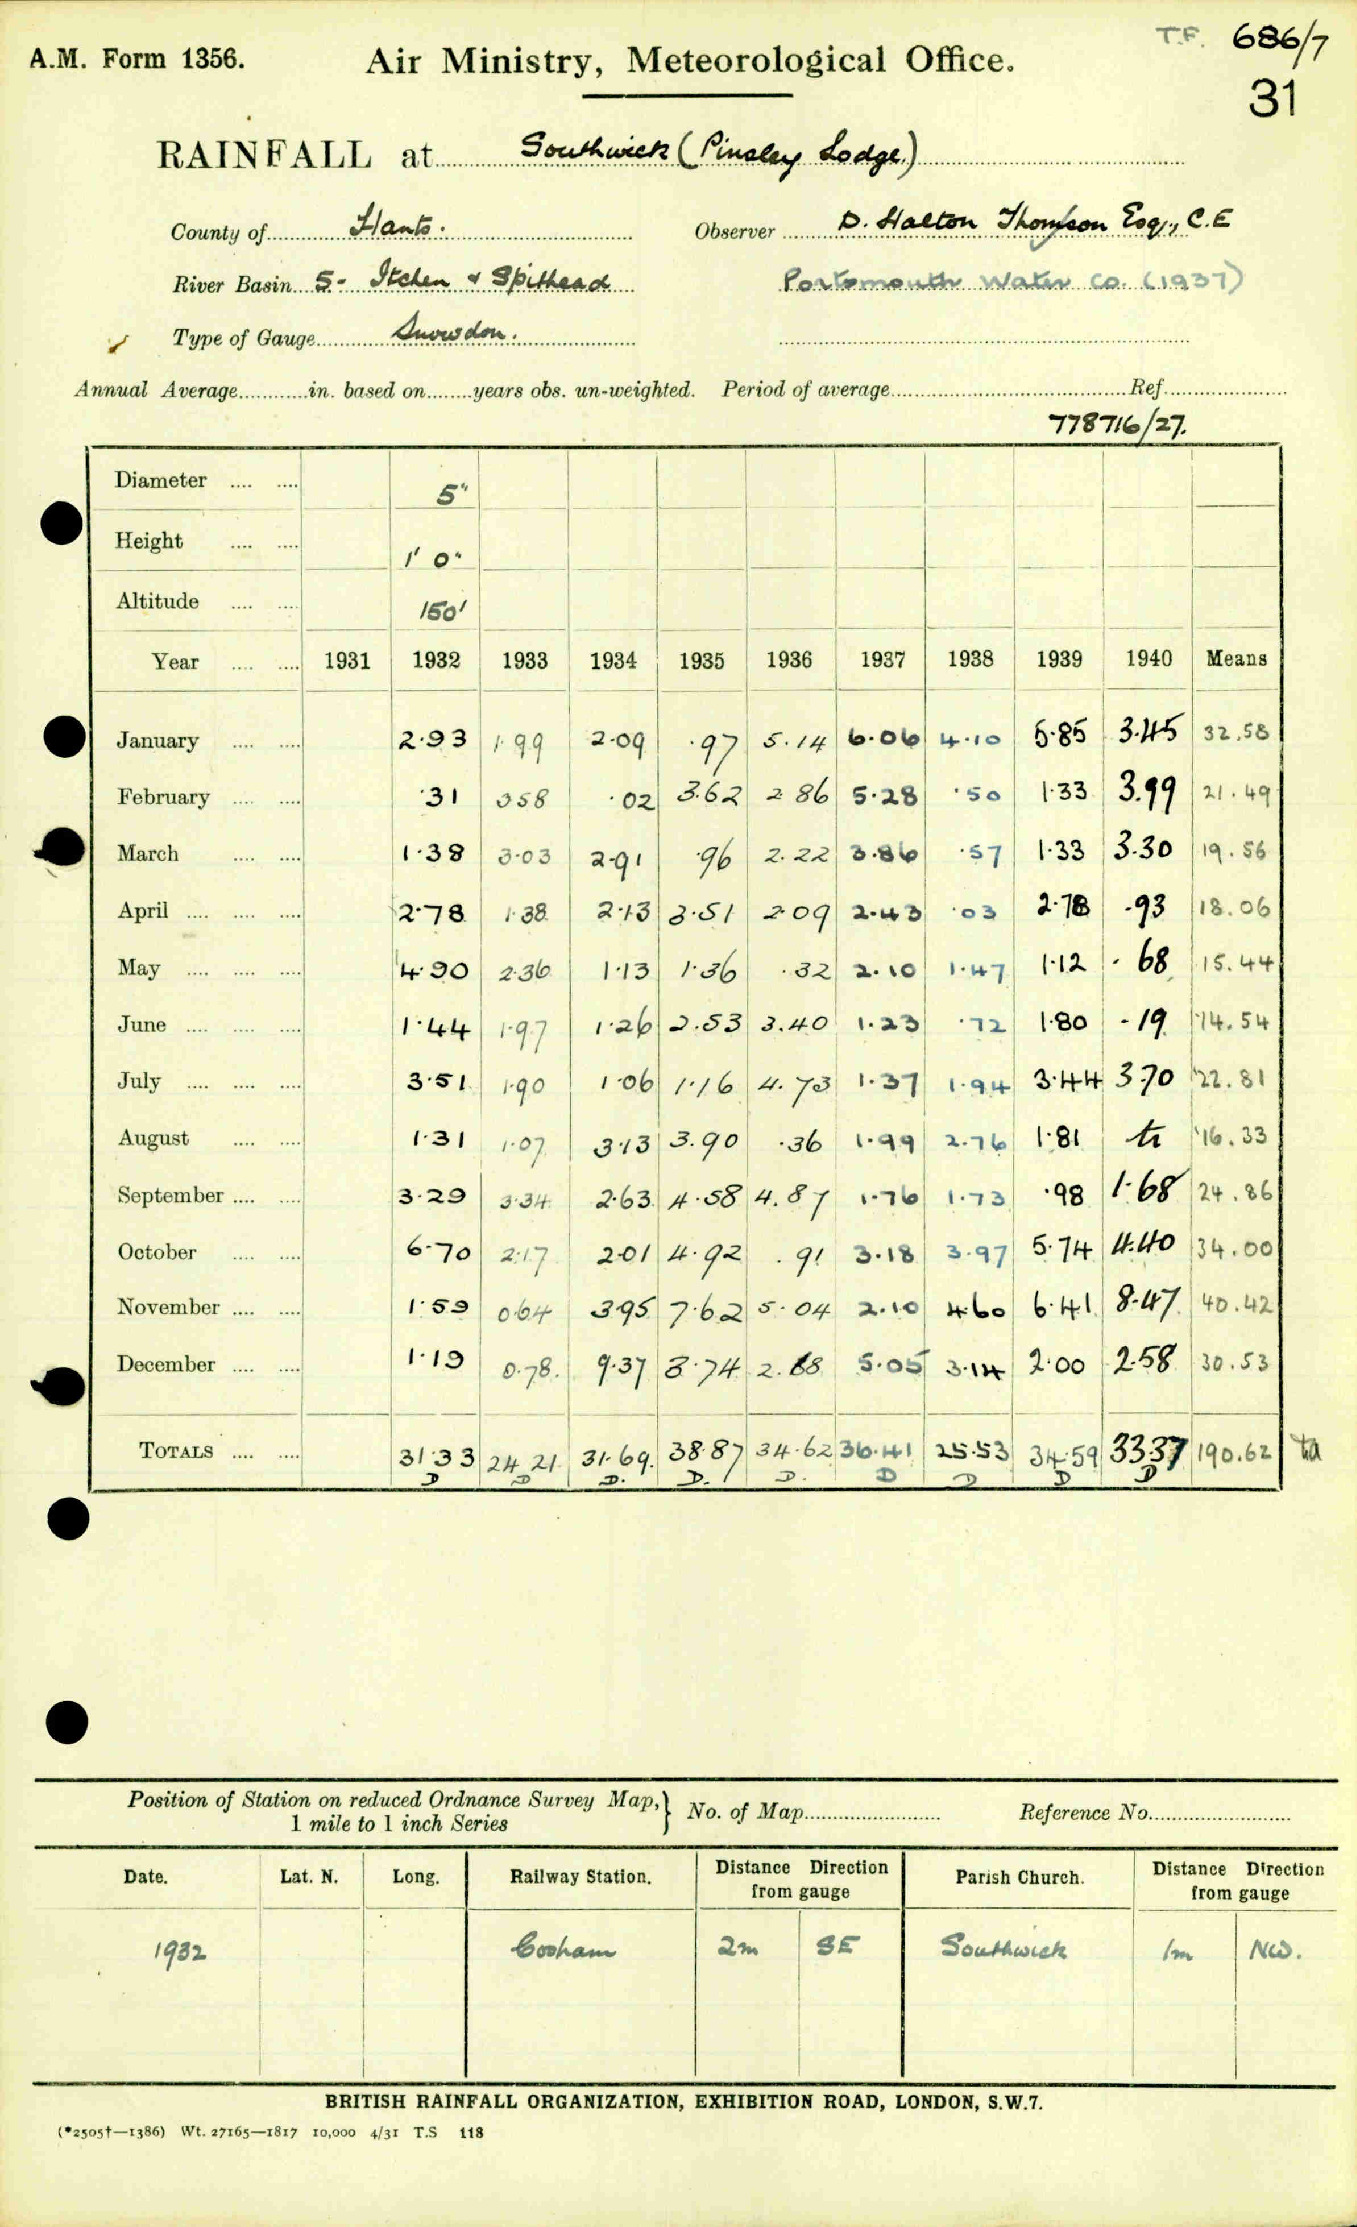 T.F. 686/7
A.M. Form 1356. Air Ministry, Meteorological Office.
31
RAINFALL at Southwick (Pinsley Lodge)
County of Hants. Observer D. Halton Thomson Esq., C.E
River Basin 5- Itchen & Spithead Portsmouth Water Co. (1937)
Type of Gauge Snowdon.
Annual Average in. based on years obs. un-weighted. Period of average Ref.
778716/27.
Diameter 5"
Height 1' 0"
Altitude 150'
Year 1931 1932 1933 1934 1935 1936 1937 1938 1939 1940 Means
January 2.93 1.99 2.09 .97 5.14 6.06 4.10 5.85 3.45 32.58
February .31 3.58 .02 3.62 2.86 5.28 .50 1.33 3.99 21.49
March 1.38 3.03 2.91 .96 2.22 3.86 .57 1.33 3.30 19.56
April 2.78 1.38 2.13 3.51 2.09 2.43 .03 2.78 .93 18.06
May 4.90 2.36 1.13 1.36 .32 2.10 1.47 1.12 .68 15.44
June 1.44 1.97 1.26 2.53 3.40 1.23 .72 1.80 .19 14.54
July 3.51 1.90 1.06 1.16 4.73 1.37 1.94 3.44 3.70 22.81
August 1.31 1.07 3.13 3.90 .36 1.99 2.76 1.81 tr 16.33
September 3.29 3.34 2.63 4.58 4.87 1.76 1.73 .98 1.68 24.86
October 6.70 2.17 2.01 4.92 .91 3.18 3.97 5.74 4.40 34.00
November 1.59 0.64 3.95 7.62 5.04 2.10 4.60 6.41 8.47 40.42
December 1.19 0.78 9.37 3.74 2.68 5.05 3.14 2.00 2.58 30.53
TOTALS 31.33 24.21 31.69 38.87 34.62 36.41 25.53 34.59 33.37 190.62 ta
D D D. D. D. D D D D
Position of Station on reduced Ordnance Survey Map, No. of Map Reference No.
1 mile to 1 inch Series
Date. Lat. N. Long. Railway Station. Distance Direction from gauge Parish Church. Distance Direction from gauge
1932 Cosham 2m SE Southwick 1m NW.
BRITISH RAINFALL ORGANIZATION, EXHIBITION ROAD, LONDON, S.W.7.
(*2505†—1386) Wt. 27165—1817 10,000 4/31 T.S 118